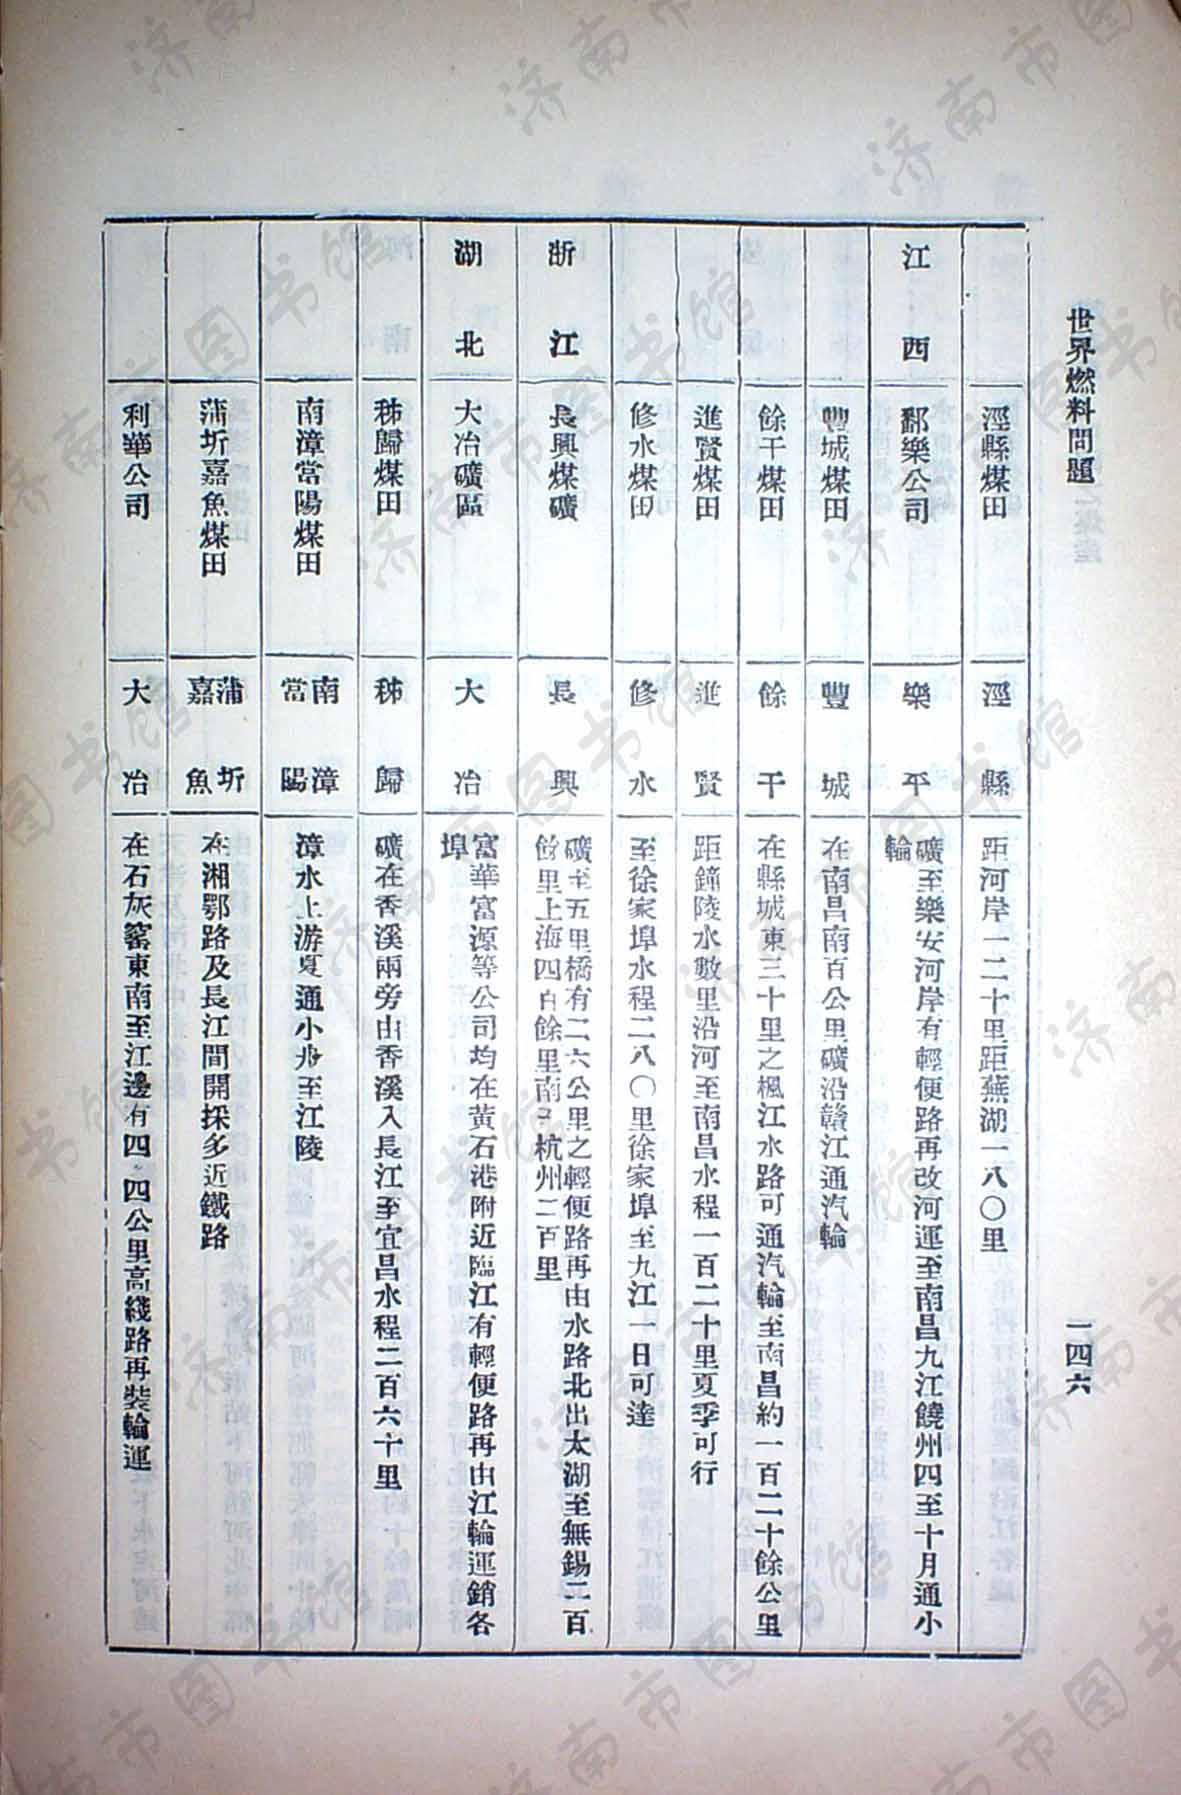 世界燃料問題
一四六
涇縣煤田 涇縣 距河岸一二十里距蕪湖一八〇里
江西 鄱樂公司 樂平 礦至樂安河岸有輕便路再改河運至南昌九江饒州四至十月通小
輪
豐城煤田 豐城 在南昌南百公里礦沿贛江通汽輪
餘干煤田 餘干 在縣城東三十里之楓江水路可通汽輪至南昌約一百二十餘公里
進賢煤田 進賢 距鐘陵水數里沿河至南昌水程一百二十里夏季可行
修水煤田 修水 至徐家埠水程二八〇里徐家埠至九江一日可達
浙江 長興煤礦 長興 礦至五里橋有二六公里之輕便路再由水路北出太湖至無錫二百
餘里上海四百餘里南至杭州二百里
湖北 大冶礦區 大冶 富華富源等公司均在黃石港附近臨江有輕便路再由江輪運銷各
埠
秭歸煤田 秭歸 礦在香溪兩旁由香溪入長江至宜昌水程二百六十里
南漳當陽煤田 南漳
當陽 漳水上游夏通小舟至江陵
蒲圻嘉魚煤田 蒲圻
嘉魚 在湘鄂路及長江間開採多近鐵路
利華公司 大冶 在石灰窰東南至江邊有四·四公里高綫路再裝輪運
济南市图书馆